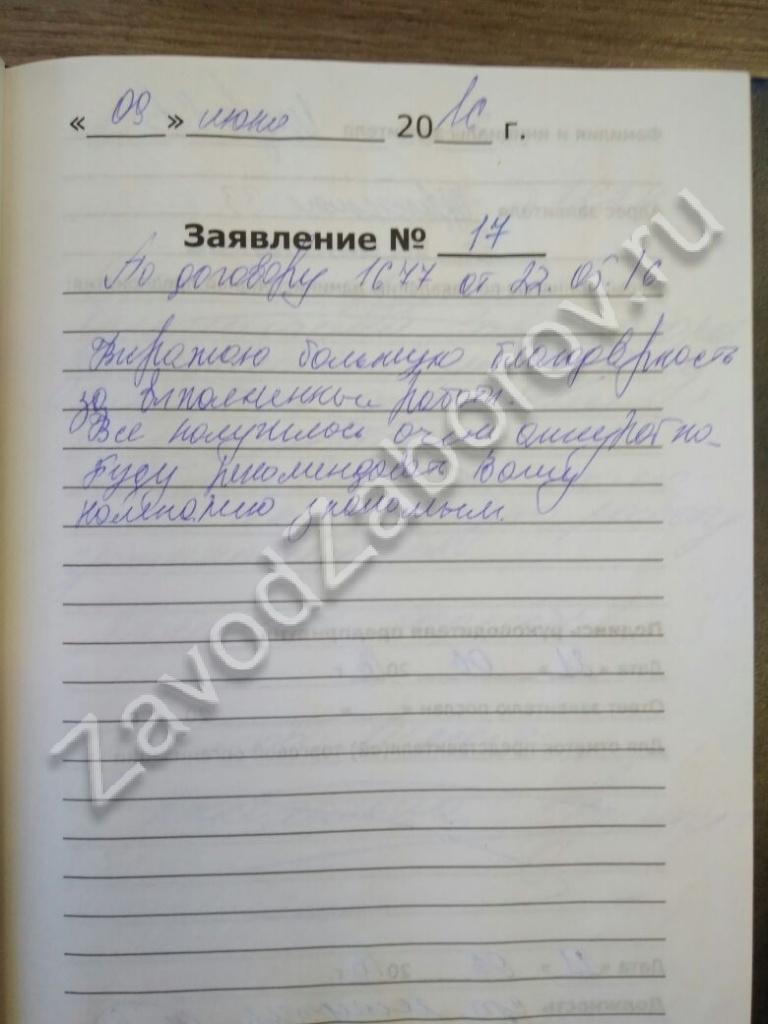 « 09 » июня 2016 г.
Заявление № 17
По договору 1677 от 22.05.16
Выражаю большую благодарность
за выполненные работы.
Все получилось очень аккуратно.
Буду рекомендовать Вашу
компанию знакомым.
ZavodZaborov.ru